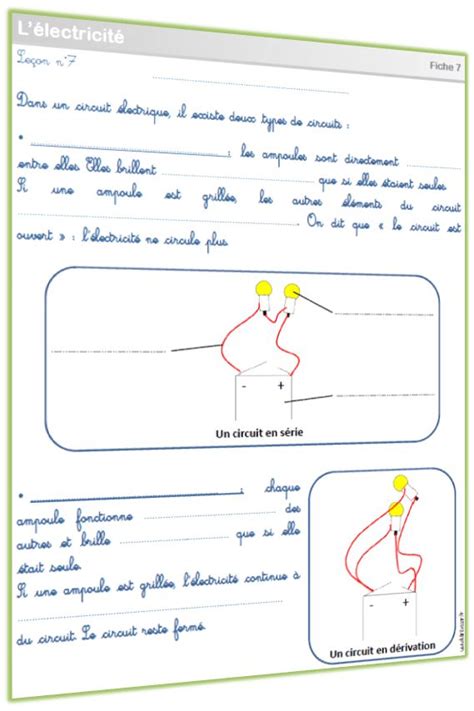 L'électricité
Fiche 7
Leçon n°7
Dans un circuit électrique, il existe deux types de circuits :
• : les ampoules sont directement
entre elles. Elles brillent que si elles étaient seules.
Si une ampoule est grillée, les autres éléments du circuit
. On dit que « le circuit est
ouvert » : l'électricité ne circule plus
- +
Un circuit en série
• : chaque
ampoule fonctionne des
autres et brille que si elle
était seule.
Si une ampoule est grillée, l'électricité continue à
du circuit. Le circuit reste fermé.
- +
Un circuit en dérivation